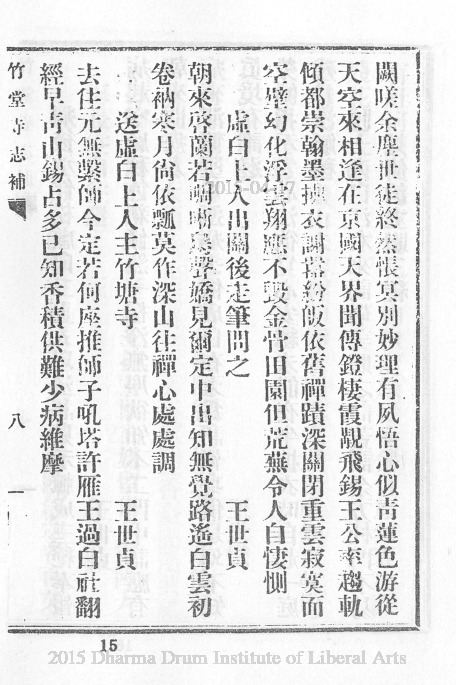 闕嗟余塵世徒終然悵冥別妙理有夙悟心似靑蓮色游從
天空來相逢在京國天界聞傳鐙棲霞覯飛錫王公率趨軌
傾都崇翰墨摳衣謝蕃紛飯依舊禪蹟深關閉重雲寂寞面
空壁幻化浮雲翔應不毀金骨田園但荒蕪令人自悽惻
虛白上人出關後走筆問之 王世貞
朝來啓蘭若啁哳衆聲嬌見爾定中出知無覺路遙白雲初
卷衲寒月尙依瓢莫作深山住禪心處處調
送虛白上人主竹塘寺 王世貞
去住元無繫師今定若何座推師子吼塔許雁王過白社翻
經早靑山錫占多已知香積供難少病維摩
竹堂寺志補 八
15
2015 Dharma Drum Institute of Liberal Arts